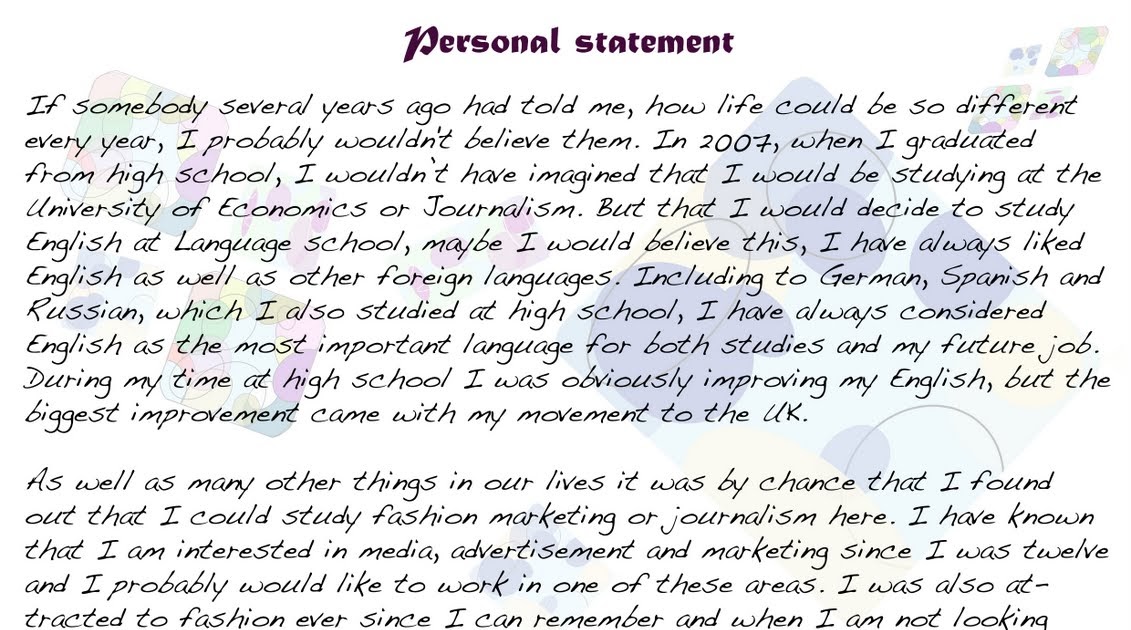 Personal statement
If somebody several years ago had told me, how life could be so different
every year, I probably wouldn't believe them. In 2007, when I graduated
from high school, I wouldn't have imagined that I would be studying at the
University of Economics or Journalism. But that I would decide to study
English at Language school, maybe I would believe this, I have always liked
English as well as other foreign languages. Including to German, Spanish and
Russian, which I also studied at high school, I have always considered
English as the most important language for both studies and my future job.
During my time at high school I was obviously improving my English, but the
biggest improvement came with my movement to the UK.
As well as many other things in our lives it was by chance that I found
out that I could study fashion marketing or journalism here. I have known
that I am interested in media, advertisement and marketing since I was twelve
and I probably would like to work in one of these areas. I was also at-
tracted to fashion ever since I can remember and when I am not looking